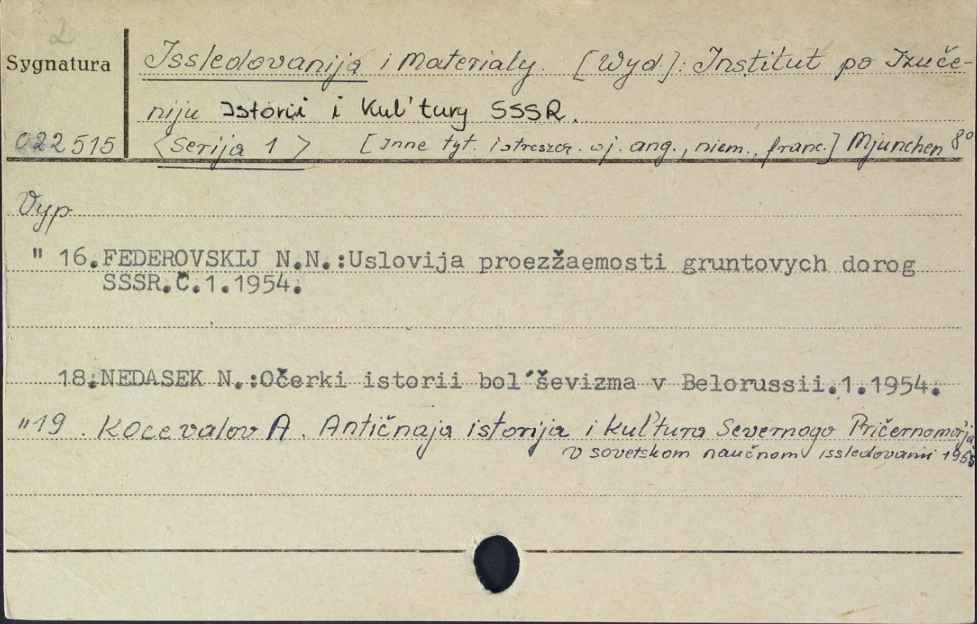 2
Sygnatura
Issledovanija i Materialy. [Wyd]: Institut po Izuče-
niju Istorii i Kul'tury SSSR.
022515
<Serija 1> [Inne tyt. i streszcz. w j. ang., niem., franc.] Mjunchen 8°
Vyp
" 16. FEDEROVSKIJ N.N.:Uslovija proezžaemosti gruntovych dorog
SSSR.Č.1.1954.
18. NEDASEK N.:Očerki istorii bol'ševizma v Belorussii.1.1954.
" 19. Kocevalov A. Antičnaja istorija i kul'tura Severnogo Pričernomorja
v sovetskom naučnom issledovanii